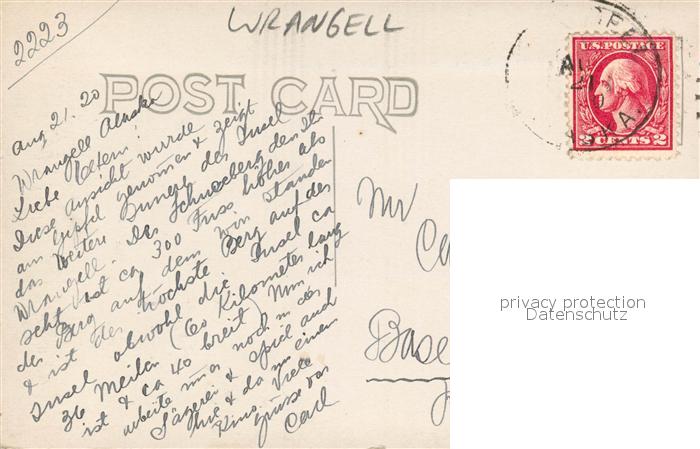 2223
WRANGELL
POST CARD
U.S. POSTAGE
2 CENTS 2
Aug 21. 20
Wrangell Alaska
Liebe Eltern!
Diese Ansicht wurde
am Gipfel genomen & zeigt
das weitere Innere der Insel
Wrangell. Der Schneeberg den Ihr
seht ist ca 300 Fuss höher als
der Berg auf dem wir standen
& ist der höchste Berg auf der
Insel obwohl die Insel ca
36 Meilen (60 Kilometer lang
ist & ca 40 breit) Nun ich
arbeite immer noch in der
Sägerei & spiel auch
hie & da in einem
Kino. Viele
Grüsse von
Carl
Mr
Ca
Base
privacy protection
Datenschutz